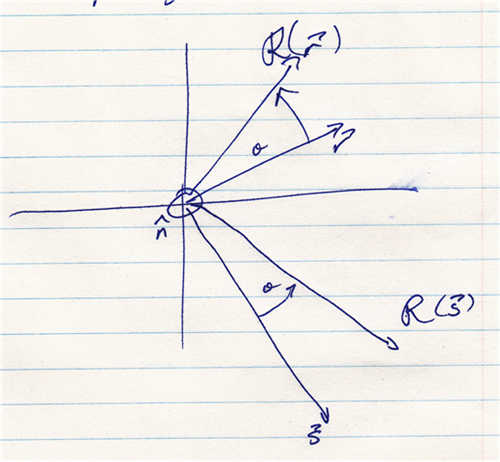 R(r⃗)
θ
r⃗
n̂
θ
R(s⃗)
s⃗